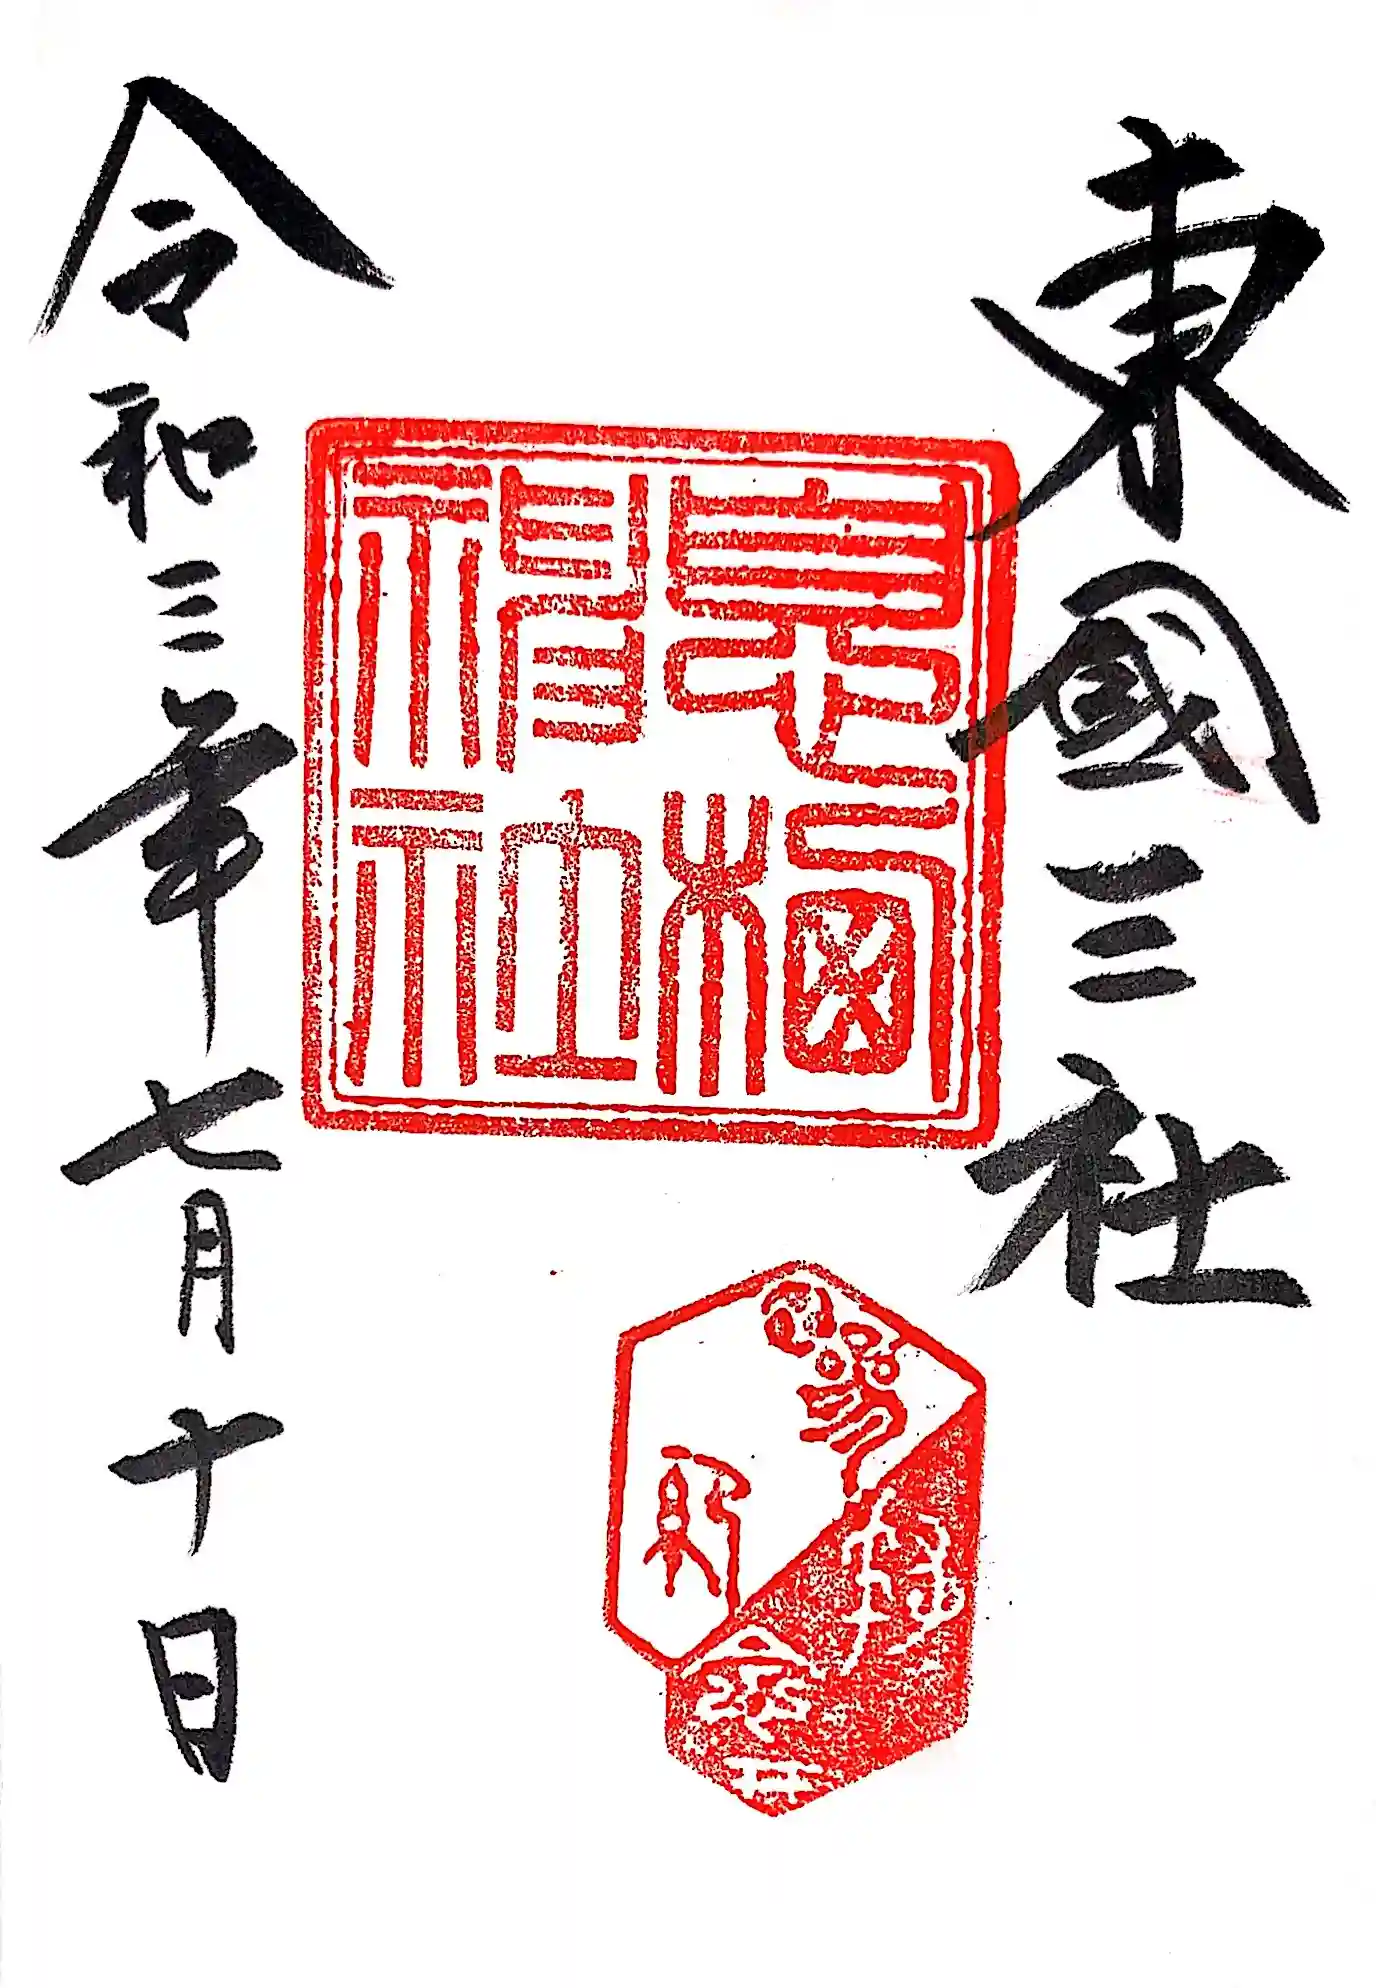 東國三社
息栖
神社
令和三年七月十日